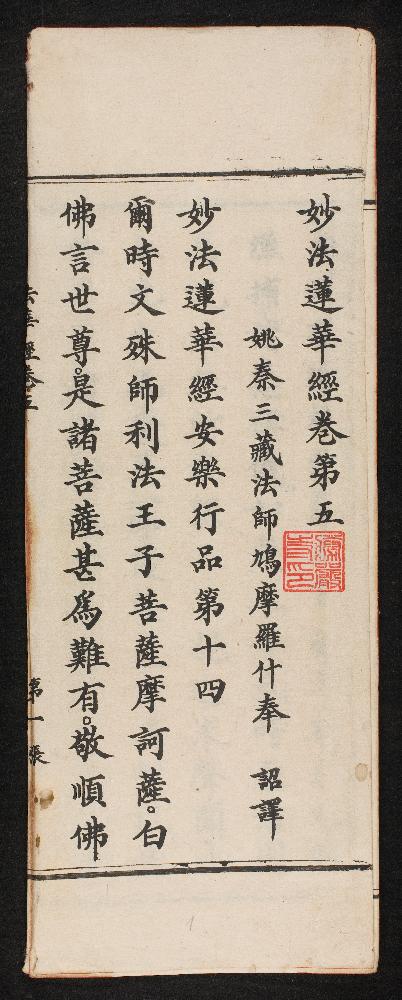 妙法蓮華經卷第五
姚秦三藏法師鳩摩羅什奉　詔譯
妙法蓮華經安樂行品第十四
爾時文殊師利法王子菩薩摩訶薩。白
佛言世尊。是諸菩薩甚為難有。敬順佛
法華經卷五
第一張